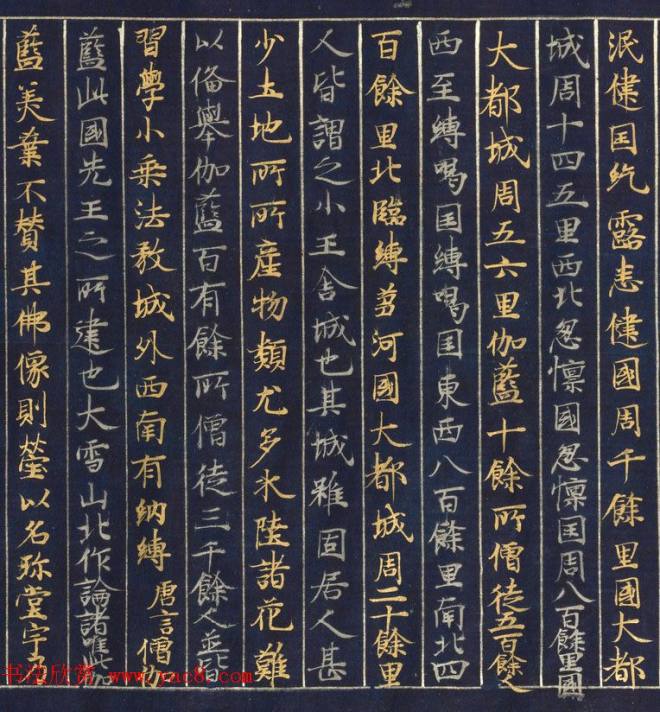 泯健国纥露悉健國周千餘里國大都
城周十四五里西北忽懍國忽懍国周八百餘里國
大都城周五六里伽藍十餘所僧徒五百餘人
西至縛喝国縛喝国東西八百餘里南北四
百餘里北臨縛芻河國大都城周二十餘里
人皆謂之小王舍城也其城雖固居人甚
少土地所所産物類尤多水陸諸花難
以俻舉伽藍百有餘所僧徒三千餘人並皆
習學小乗法教城外西南有納縛唐言僧伽
藍此國先王之所建也大雪山北作論諸
藍美業不賛其佛像則瑩以名珎堂宇
书法欣赏 www.yac8.com